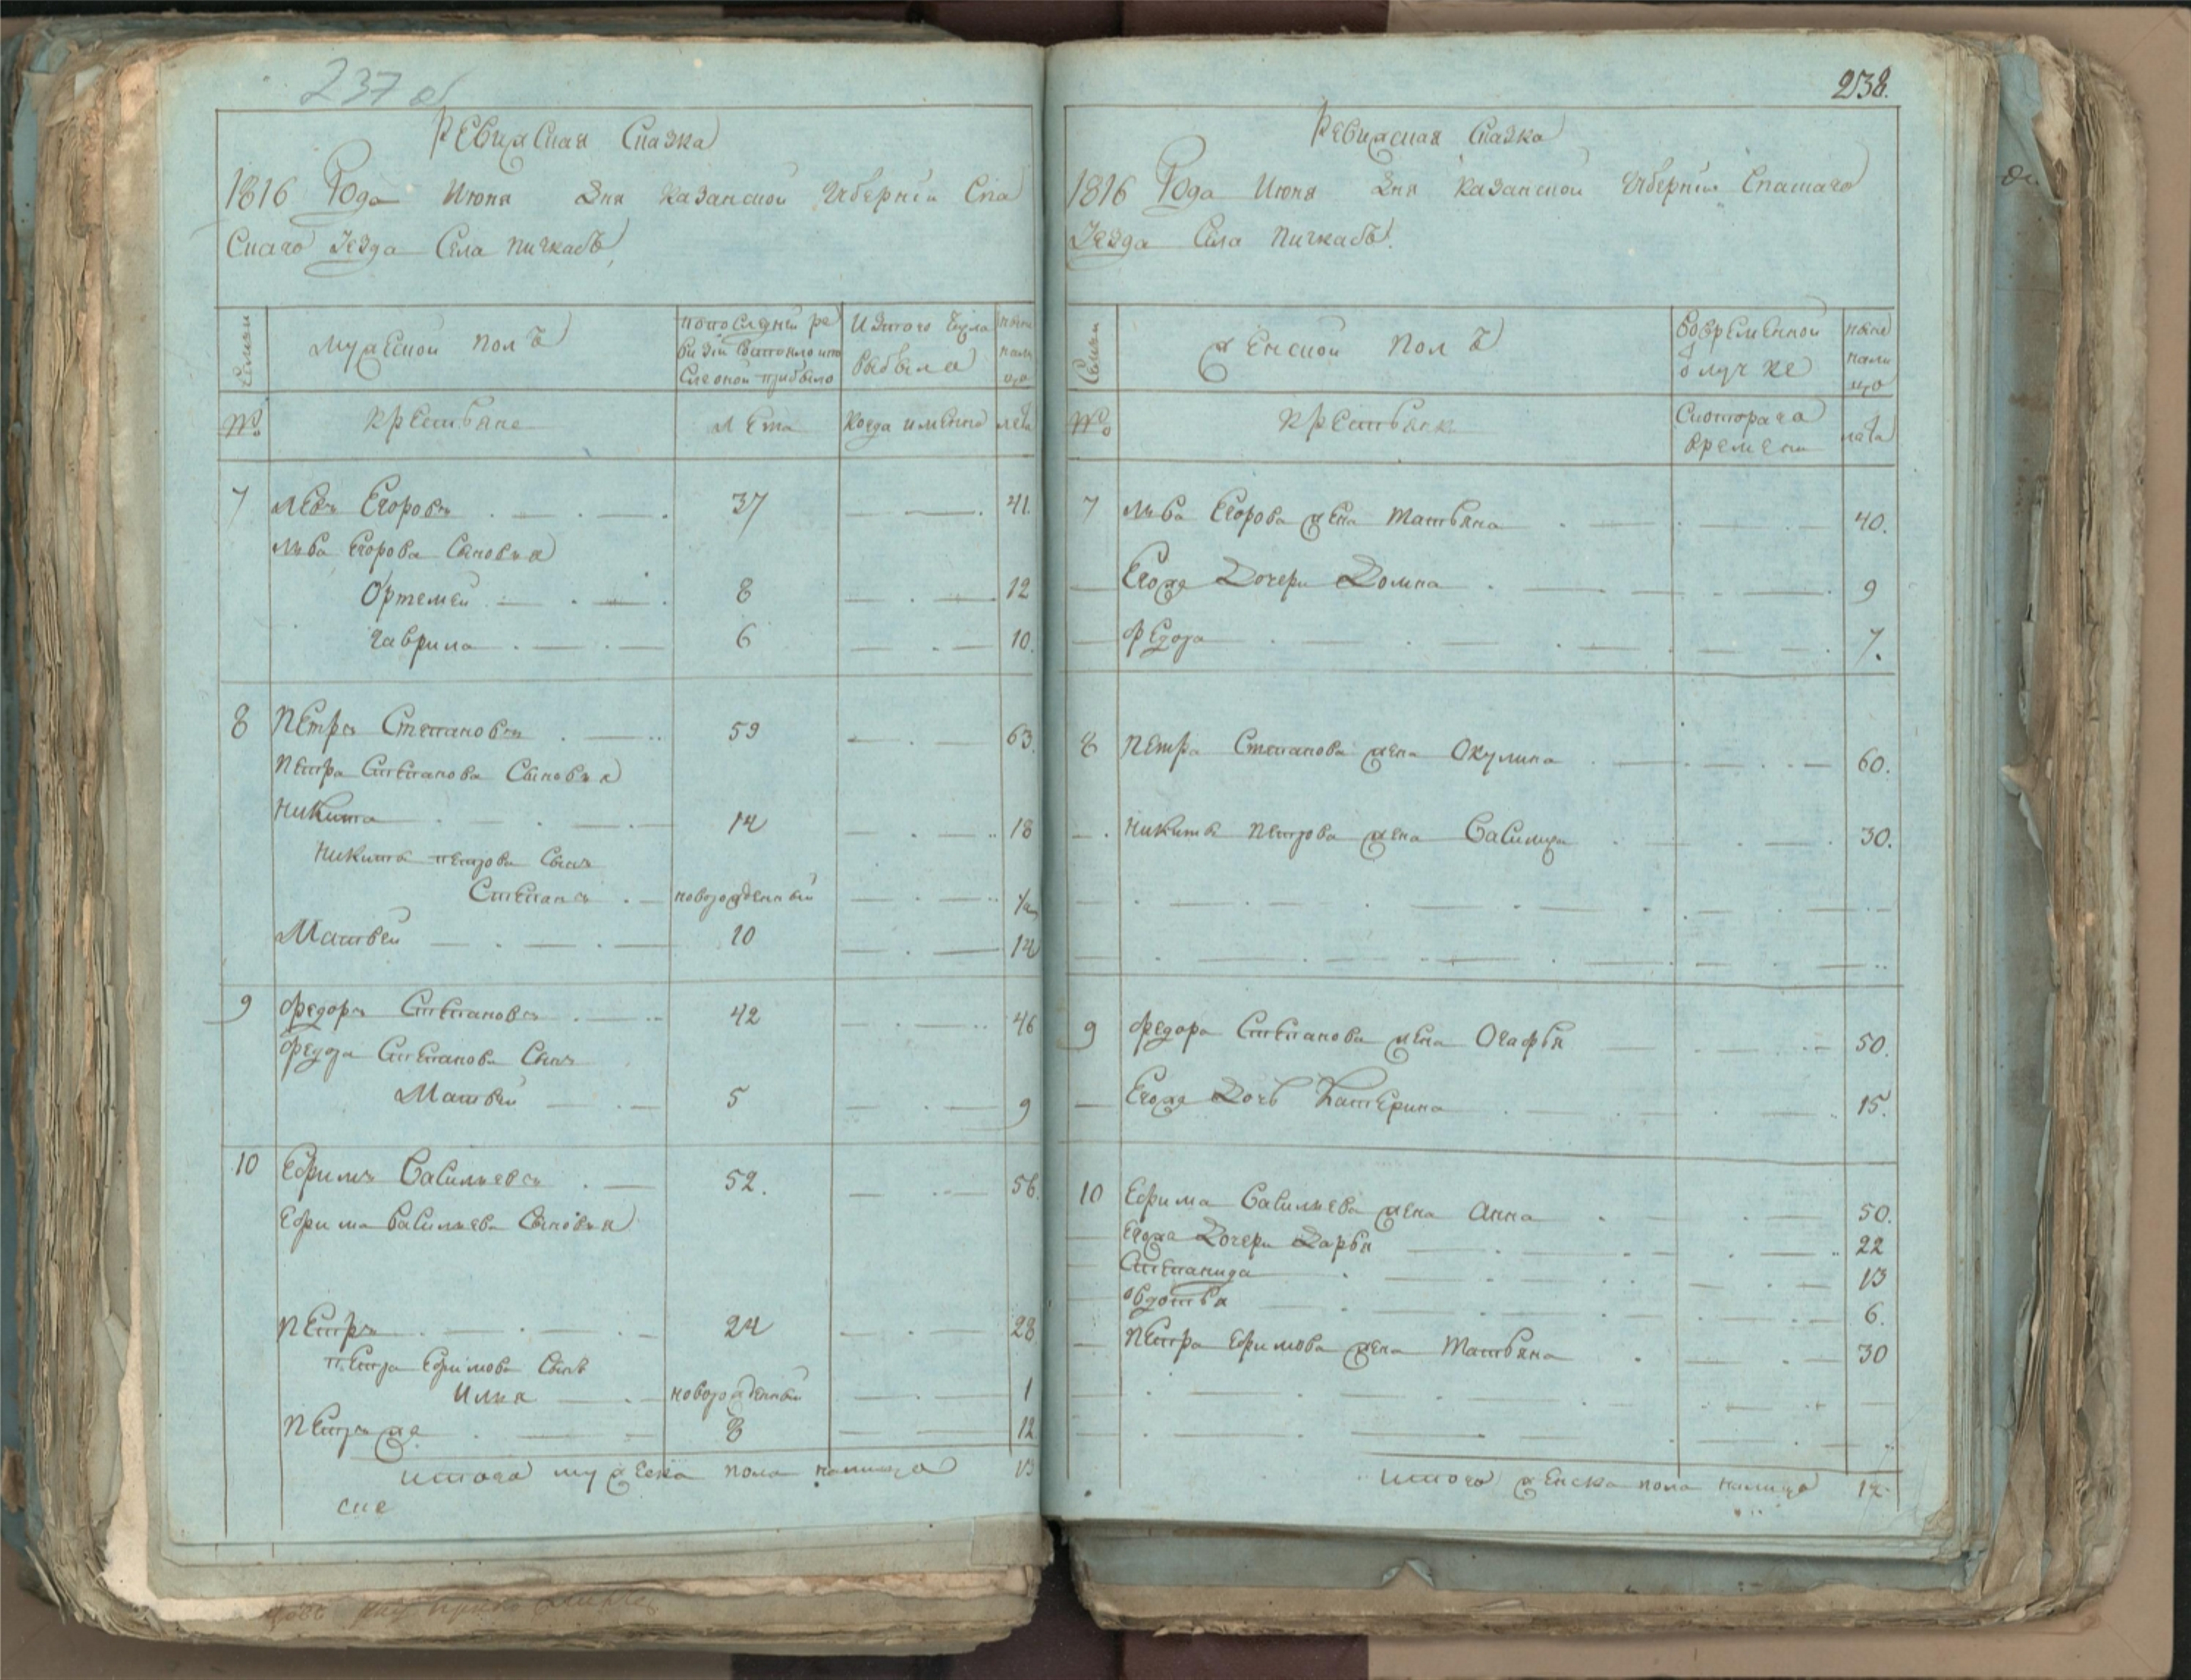 237 об
Ревижская Сказка
1816 Года Июня Дня Казанской Губернiи Спа
Скаго Уезда Села Пичкасъ
Семьи
Мужеской полъ
попоследней ре
визiи Состояло ипо
Сле оной прибыло
Изтого Числа
выбыло
ныне
нали
цо
№
Крестьяне
Лета
Когда имянно
лета
7 Левъ Егоровъ 37 41.
Льва Егорова Сыновья
Ортемей 8 12
Гаврила 6 10.
8 Петръ Степановъ 59 63.
Петра Степанова Сыновья
Никита 14 18
Никиты Петрова Сынъ
Степанъ новорожденный 1/2
Матвей 10 14
9 Федоръ Степановъ 42 46
Федора Степанова Сынъ
Матвей 5 9
10 Ефимъ Васильевъ 52. 56.
Ефима Васильева Сыновья
Петръ 24 28.
Петра Ефимова Сынъ
Илья новорожденный 1
Петръ же 8 12.
итого мужеска пола налицо 13
ске
238.
Ревижская Сказка
1816 Года Июня Дня Казанской Губернiи Спаскаго
Уезда Села Пичкасъ.
Семьи
Женской Полъ
Вовременной
отлучке
ныне
нали
цо
№
Крестьянки
Скоторага
времени
лета
7 Льва Егорова жена Татьяна 40.
Егоже Дочери Домна 9
Федора 7.
8 Петра Степанова жена Окулина 60.
Никиты Петрова жена Василиса 30.
9 Федора Степанова жена Огафья 50.
Егоже Дочь Катерина 15.
10 Ефима Васильева жена Анна 50.
Егоже Дочери Дарья 22
Степанида 13
Овдотья 6.
Петра Ефимова жена Татьяна 30
итого женска пола налицо 12